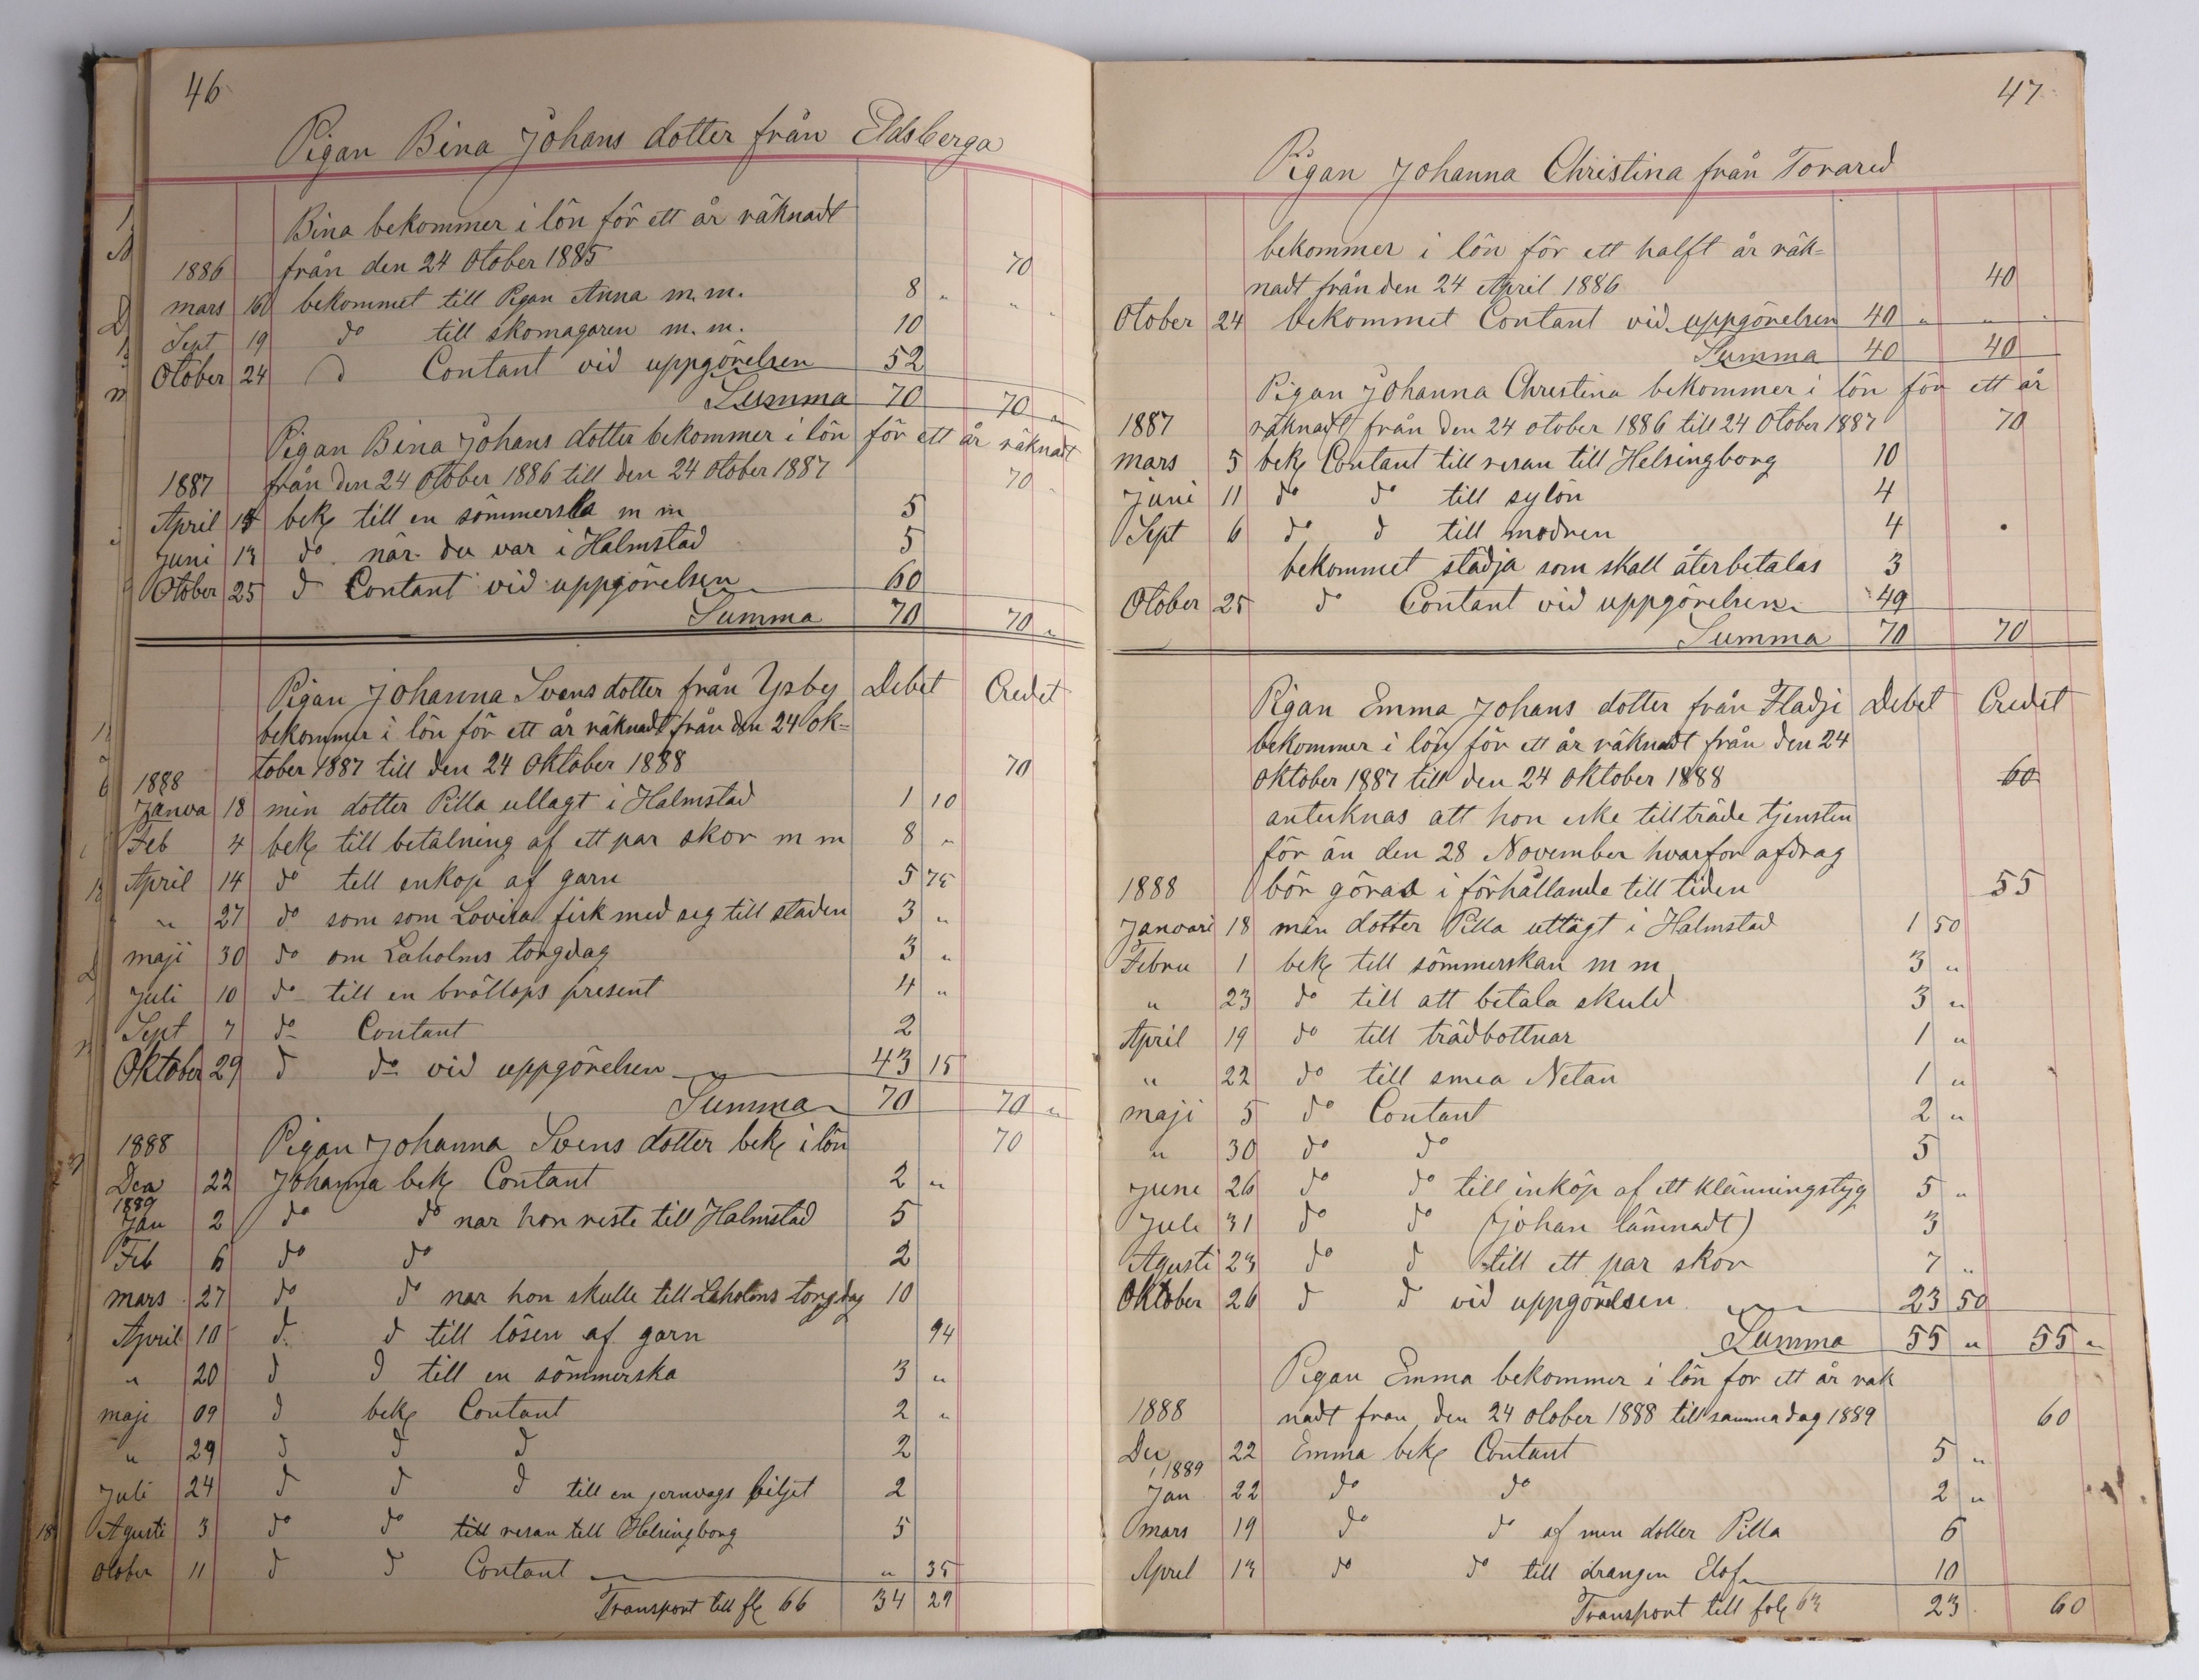 46
Pigan Bina Johans dotter från Eldsberga
Bina bekommer i lön för ett år räknadt
1886 från den 24 Otober 1885 70
mars 16 bekommet till Pigan Anna m.m. 8 " "
Sept 19 do till skomagaren m.m. 10
Otober 24 d Contant vid uppgörelsen 52
Summa 70 70 "
Pigan Bina Johans dotter bekommer i lön för ett år räknadt
1887 från den 24 Otober 1886 till den 24 Otober 1887 70
April bek till en sömmerska m m 5
Juni 13 do när du var i Halmstad 5
Otober 25 d Contant vid uppgörelsen 60
Summa 70 70 "
Pigan Johanna Svens dotter från Ysby Debet Credet
bekommer i lön för ett år räknadt från den 24 Ok=
tober 1887 till den 24 Oktober 1888 70
1888
Janva 18 min dotter Pilla utlagt i Halmstad 1 10
Feb 4 bek till betalning af ett par skor m m 8 "
April 14 do till enkop af garn 5 75
" 27 do som som Lovisa fick med seg till staden 3 "
maji 30 do om Laholms torgdag 3 "
Juli 10 do till en bröllops present 4 "
Sept 7 do Contant 2
Oktober 29 d do vid uppgörelsen 43 15
Summa 70 70 "
1888 Pigan Johanna Svens dotter bek i lön 70
Dec 22 Johanna bek Contant 2 "
1889
Jan 2 do do nar hon reste till Halmstad 5
Feb 6 do do 2
mars 27 do do nar hon skulle till Laholms torgdag 10
April 10 d d till lösen af garn 94
" 20 d d till en sömmerska 3 "
maji 09 d bek Contant 2 "
" 29 d d d 2
Juli 24 d d d till en jernvags biljet 2
Agusti 3 do do till resan till Helsingborg 5
Otober 11 d d Contant " 35
Transport till fl 66 34 29
47
Pigan Johanna Christina från Tovared
bekommer i lön för ett halft år räk=
nadt från den 24 April 1886 40
Otober 24 bekommet Contant vid uppgörelsen 40 " " "
Summa 40 40
Pigan Johanna Christina bekommer i lön för ett år
1887 räknadt från den 24 otober 1886 till 24 Otober 1887 70
mars 5 bek Contant till resan till Helsingborg 10
Juni 11 do do till sylön 4
Sept 6 do d till modren 4
bekommet städja som skall återbetalas 3
Otober 25 do Contant vid uppgörelsen 49
Summa 70 70
Pigan Emma Johans dotter från Fladje Debet Credet
bekommer i lön för ett år räknadt från den 24
Oktober 1887 till den 24 Oktober 1888 60
anteknas att hon icke tillträde tjensten
för än den 28 November hvarfor afdrag
1888 bör göras i förhållande till tiden 55
Janvari 18 min dotter Pilla uttagt i Halmstad 1 50
Febru 1 bek till sömmerskan m m 3 "
" 23 do till att betala skuld 3 "
April 19 do till trädbottnar 1 "
" 22 do till smea Netan 1 "
maji 5 do Contant 2 "
" 30 do do 5
June 26 do do till inköp af ett klänningstyg 5 "
Jule 31 do do (johan lämnadt) 3
Agusti 23 do d till ett par skor 7 "
Oktober 26 d d vid uppgörelsen 23 50
Summa 55 " 55 "
Pigan Emma bekommer i lön for ett år rak
1888 nadt fran den 24 otober 1888 till samma dag 1889 60
Dec 22 Emma bek Contant 5 "
1889
Jan 22 do do 2 "
mars 19 do do af min dotter Pilla 6
April 13 do do till drangen Elof 10
Transport till fol 63 23 60